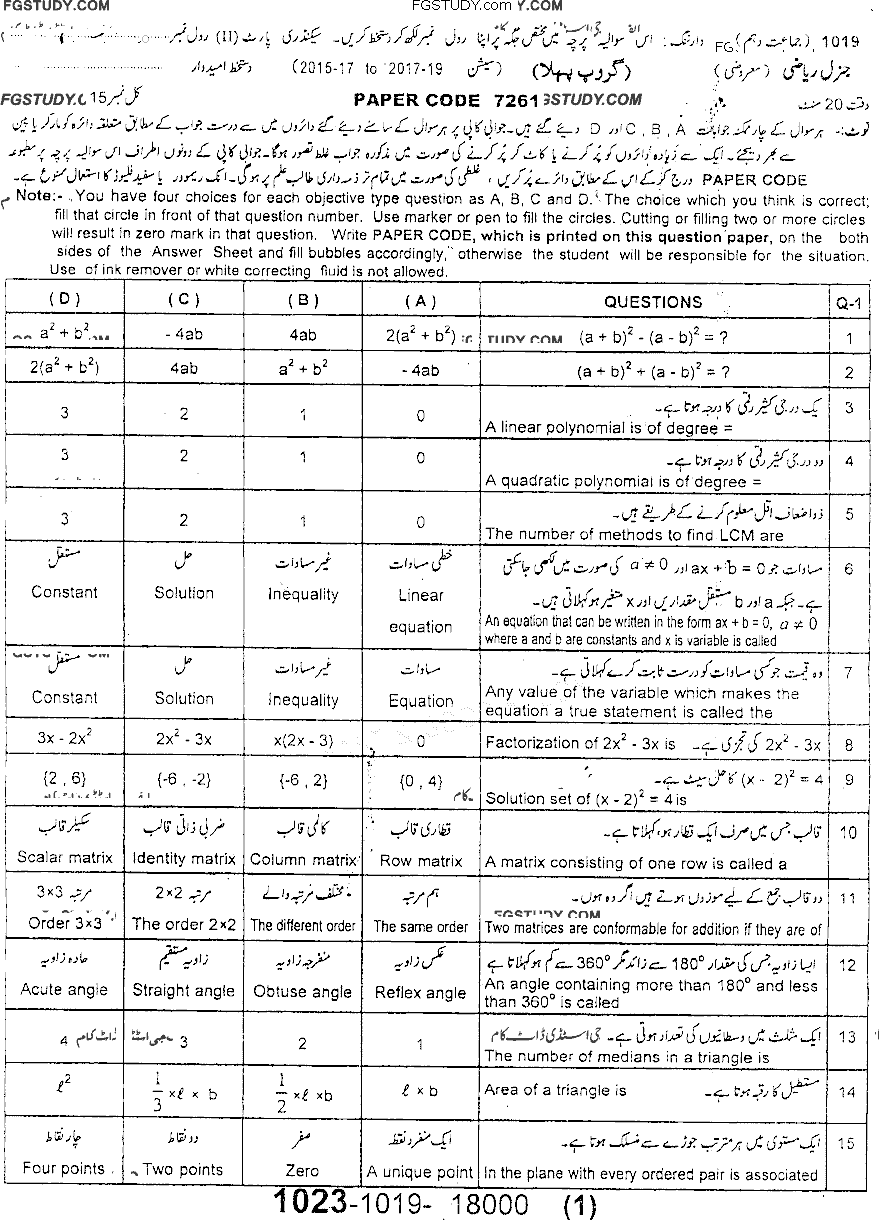 FGSTUDY.COM FGSTUDY.com Y.COM
1019 ,(جماعت دہم) FG وارننگ: اس سوالیہ پرچہ میں مختص جگہ پر اپنا رول نمبر لکھ کر دستخط کریں۔ سیکنڈری پارٹ (II) رول نمبر
جنرل ریاضی (معروضی) (گروپ پہلا) سیشن (2015-17 to 2017-19) دستخط امیدوار
وقت 20 منٹ PAPER CODE 7261 GSTUDY.COM کل نمبر 15 FGSTUDY.C
نوٹ:- ہر سوال کے چار ممکنہ جوابات A , B , C اور D دیئے گئے ہیں۔ جوابی کاپی پر ہر سوال کے سامنے دیئے گئے دائروں میں سے درست جواب کے مطابق متعلقہ دائرہ کو مارکر یا پین
سے بھر دیجئے۔ ایک سے زیادہ دائروں کو پُر کرنے یا کاٹ کر پُر کرنے کی صورت میں مذکورہ جواب غلط تصور ہوگا۔ جوابی کاپی کے دونوں اطراف اس سوالیہ پرچہ پر مطبوعہ
PAPER CODE درج کر کے اس کے مطابق دائرے پُر کریں، غلطی کی صورت میں تمام تر ذمہ داری طالب علم پر ہوگی۔ انک ریموور یا سفید فلیوڈ کا استعمال ممنوع ہے۔
Note:- You have four choices for each objective type question as A, B, C and D. The choice which you think is correct;
fill that circle in front of that question number. Use marker or pen to fill the circles. Cutting or filling two or more circles
will result in zero mark in that question. Write PAPER CODE, which is printed on this question paper, on the both
sides of the Answer Sheet and fill bubbles accordingly, otherwise the student will be responsible for the situation.
Use of ink remover or white correcting fluid is not allowed.
(D) (C) (B) (A) QUESTIONS Q-1
a² + b² - 4ab 4ab 2(a² + b²) TUDY.COM (a + b)² - (a - b)² = ? 1
2(a² + b²) 4ab a² + b² - 4ab (a + b)² + (a - b)² = ? 2
یک درجی کثیر رقمی کا درجہ ہوتا ہے۔ 3
3 2 1 0 A linear polynomial is of degree =
دو درجی کثیر رقمی کا درجہ ہوتا ہے۔ 4
3 2 1 0 A quadratic polynomial is of degree =
ذواضعاف اقل معلوم کرنے کے طریقے ہیں۔ 5
3 2 1 0 The number of methods to find LCM are
مستقل حل غیر مساوات خطی مساوات مساوات جو ax + b = 0 اور a ≠ 0 کی صورت میں لکھی جا سکتی 6
ہے۔ جبکہ a اور b مستقل مقداریں اور x متغیر ہو کہلاتی ہیں۔
Constant Solution Inequality Linear equation An equation that can be written in the form ax + b = 0, a ≠ 0
where a and b are constants and x is variable is called
مستقل حل غیر مساوات مساوات وہ قیمت جو کسی مساوات کو درست ثابت کرے کہلاتی ہے۔ 7
Constant Solution Inequality Equation Any value of the variable which makes the
equation a true statement is called the
3x - 2x² 2x² - 3x x(2x - 3) 0 Factorization of 2x² - 3x is 2x² - 3x کی تجزی ہے۔ 8
{2 , 6} {-6 , -2} {-6 , 2} {0 , 4} (x - 2)² = 4 کا حل سیٹ ہے۔ 9
Solution set of (x - 2)² = 4 is
سکیلر قالب ضربی ذاتی قالب کالمی قالب قطاری قالب قالب جس میں صرف ایک قطار ہو، کہلاتا ہے۔ 10
Scalar matrix Identity matrix Column matrix Row matrix A matrix consisting of one row is called a
مرتبہ 3×3 مرتبہ 2×2 مختلف مرتبہ والے ہم مرتبہ دو قالب جمع کے لیے موزوں ہوتے ہیں اگر وہ ہوں۔ 11
FGSTUDY.COM
Order 3×3 The order 2×2 The different order The same order Two matrices are conformable for addition if they are of
حادہ زاویہ زاویہ مستقیم منفرجہ زاویہ عکس زاویہ ایسا زاویہ جس کی مقدار 180° سے زائد مگر 360° سے کم ہو کہلاتا ہے 12
Acute angle Straight angle Obtuse angle Reflex angle An angle containing more than 180° and less
than 360° is called
4 3 2 1 ایک مثلث میں وسطانیوں کی تعداد ہوتی ہے۔ جی اسٹڈی ڈاٹ کام 13
The number of medians in a triangle is
ℓ² 1/3 ×ℓ × b 1/2 ×ℓ ×b ℓ × b Area of a triangle is مستطیل کا رقبہ ہوتا ہے۔ 14
چار نقاط دو نقاط صفر ایک منفرد نقطہ ایک مستوی میں ہر مترتب جوڑے سے منسلک ہوتا ہے۔ 15
Four points Two points Zero A unique point In the plane with every ordered pair is associated
1023-1019- 18000 (1)